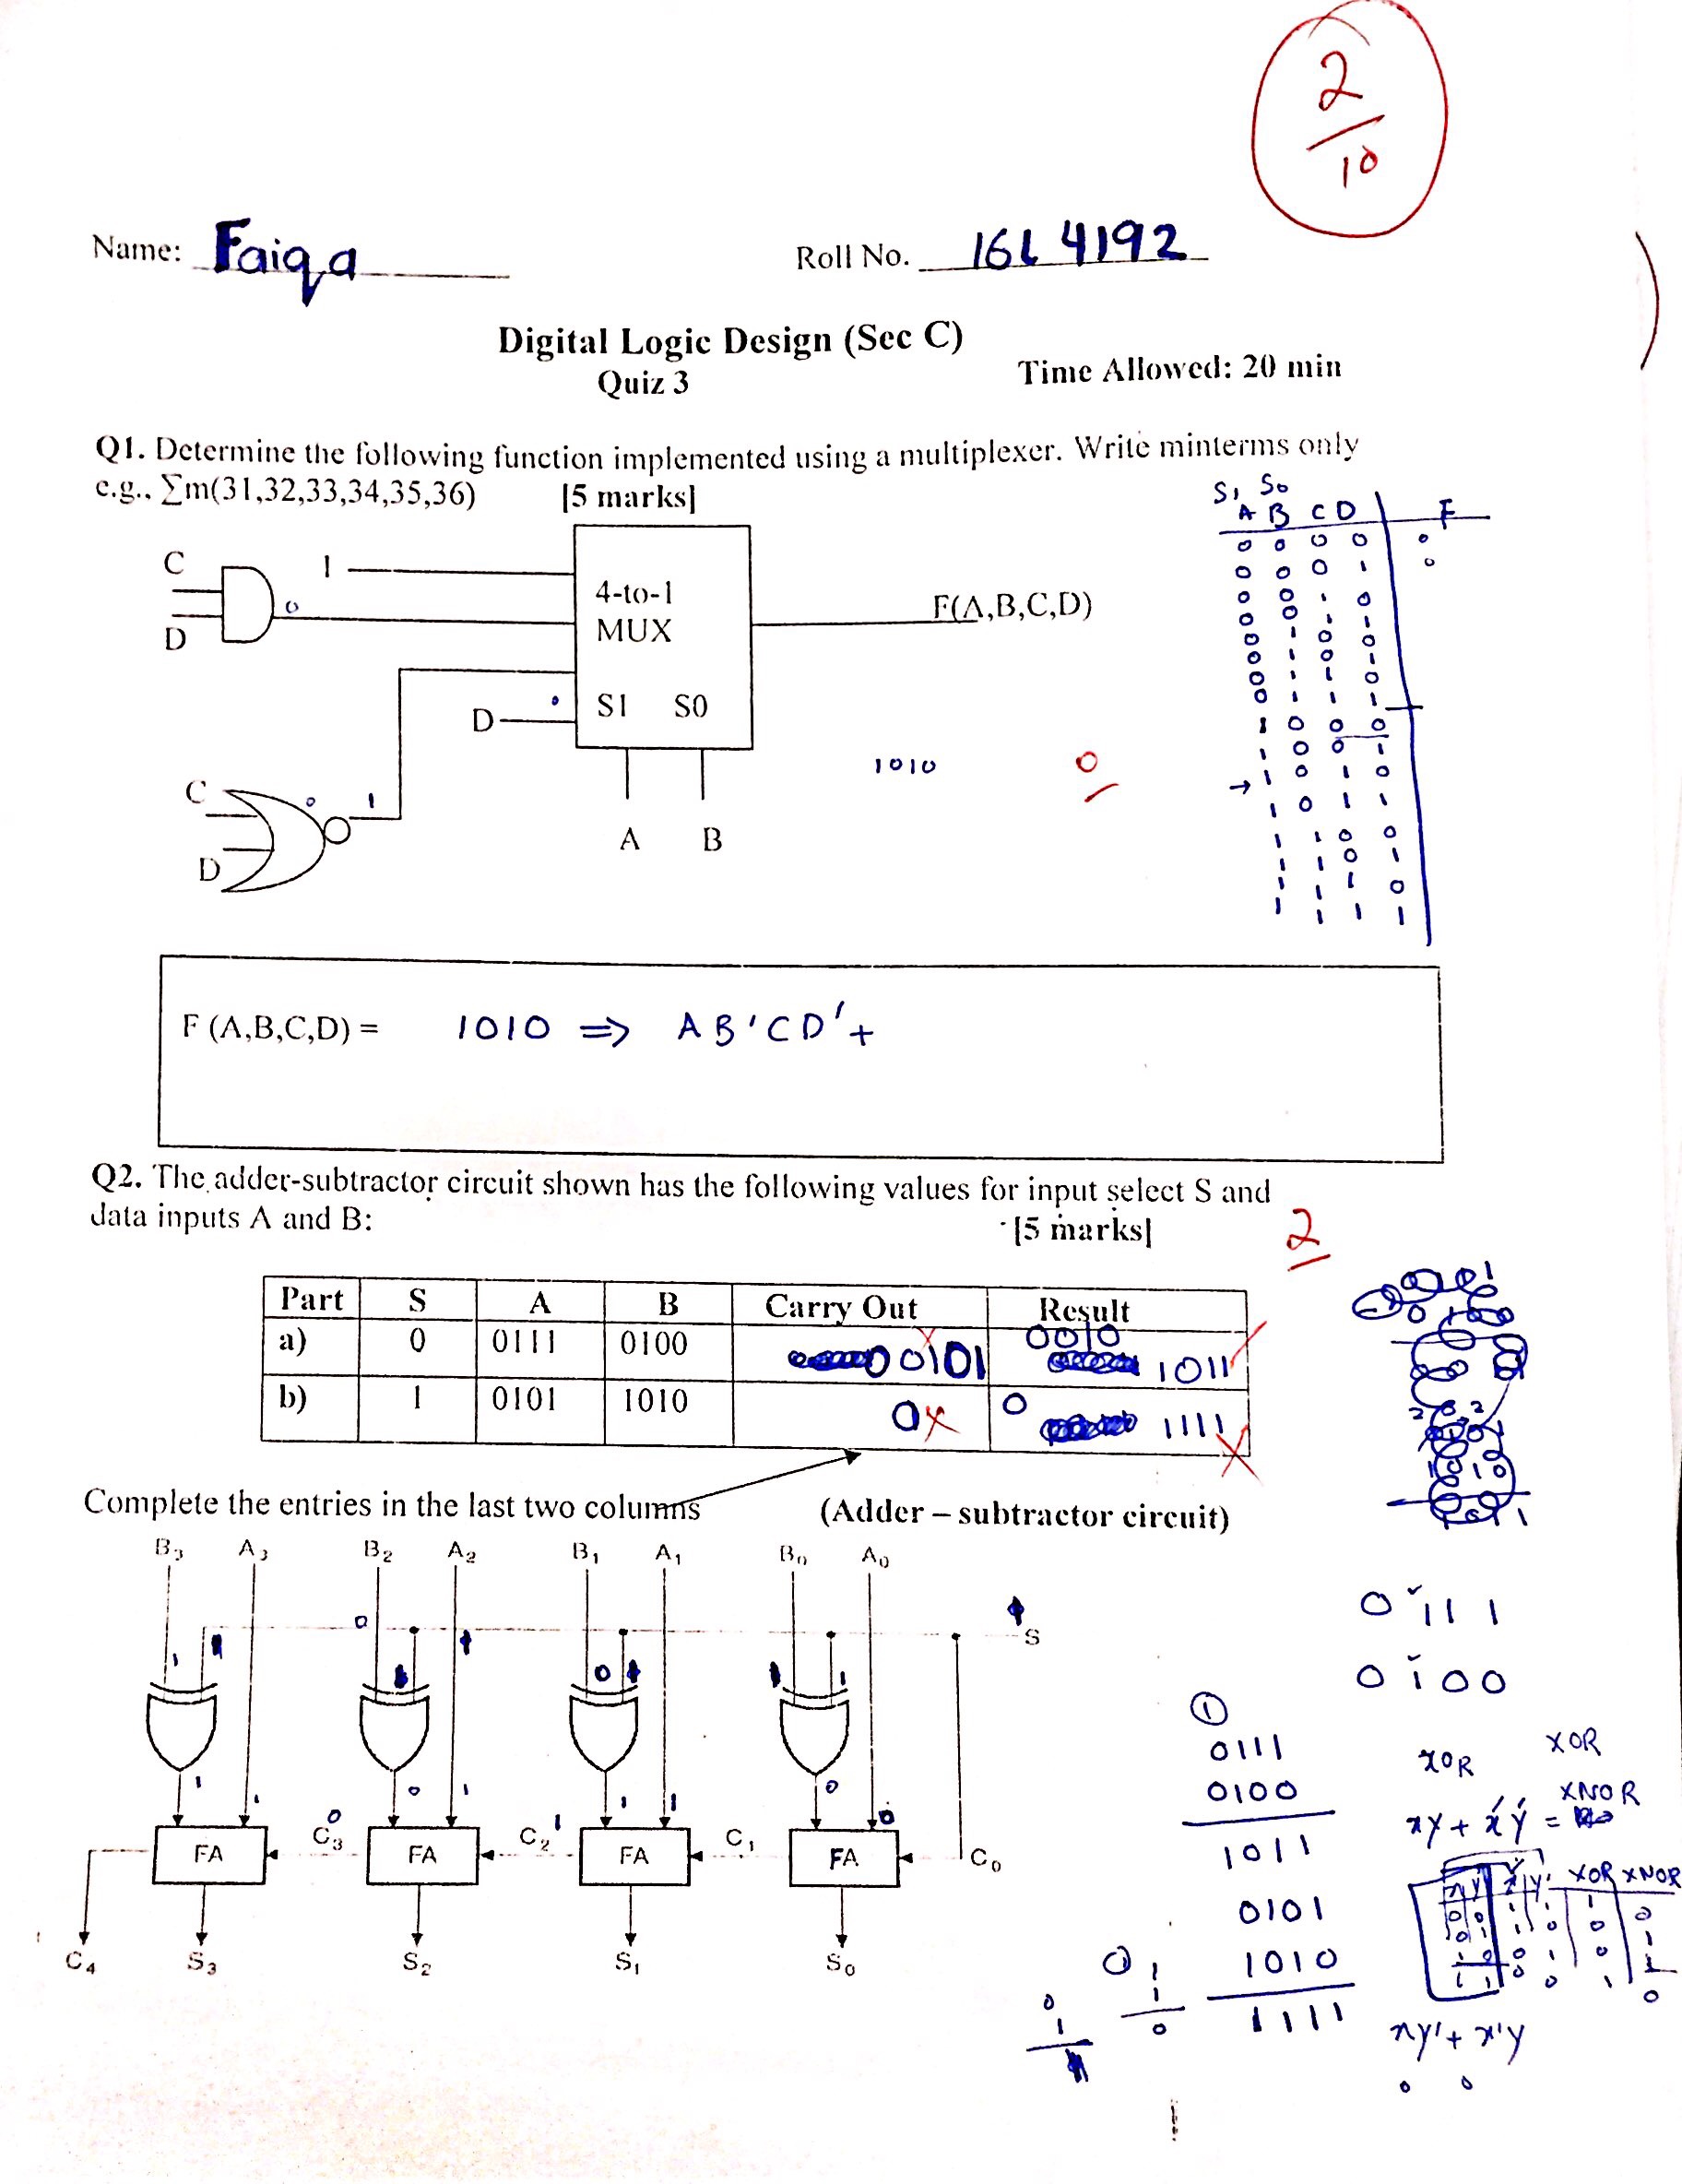 2
10
Name: Faiqa Roll No. 16L 4192
Digital Logic Design (Sec C)
Quiz 3 Time Allowed: 20 min
Q1. Determine the following function implemented using a multiplexer. Write minterms only
e.g., ∑m(31,32,33,34,35,36) [5 marks]
S1 S0
A B C D F
0 0 0 0 0
0 0 0 1 0
0 0 1 0
0 0 1 1
0 1 0 0
0 1 0 1
0 1 1 0
0 1 1 1
1 0 0 0
1 0 0 1
→ 1 0 1 0
1 0 1 1
1 1 0 0
1 1 0 1
1 1 1 0
1 1 1 1
C
D
0
1
4-to-1
MUX
F(A,B,C,D)
0
D
S1 S0
C
D
0
1
A B
1010
0
F (A,B,C,D) = 1010 ⇒ AB'CD'+
Q2. The adder-subtractor circuit shown has the following values for input select S and
data inputs A and B: [5 marks]
2
Part S A B Carry Out Result
a) 0 0111 0100 00101 0010 1011
b) 1 0101 1010 0 0 1111
Complete the entries in the last two columns (Adder – subtractor circuit)
B3 A3 B2 A2 B1 A1 B0 A0
0
S
1 0 1
1 1 0 1 1 1 0 0
FA C3 FA C2 FA C1 FA C0
0 1
C4 S3 S2 S1 S0
0111
0100
1
0111
0100
1011
0101
1010
1111
0
1
1
0
0
1
XOR XOR
XNOR
xy + x'y' =
x y x' y' XOR XNOR
0 0 1 1 1 0
0 1 1 0 0 1
1 0 0 1 0 1
1 1 0 0 1 0
xy' + x'y
0 0